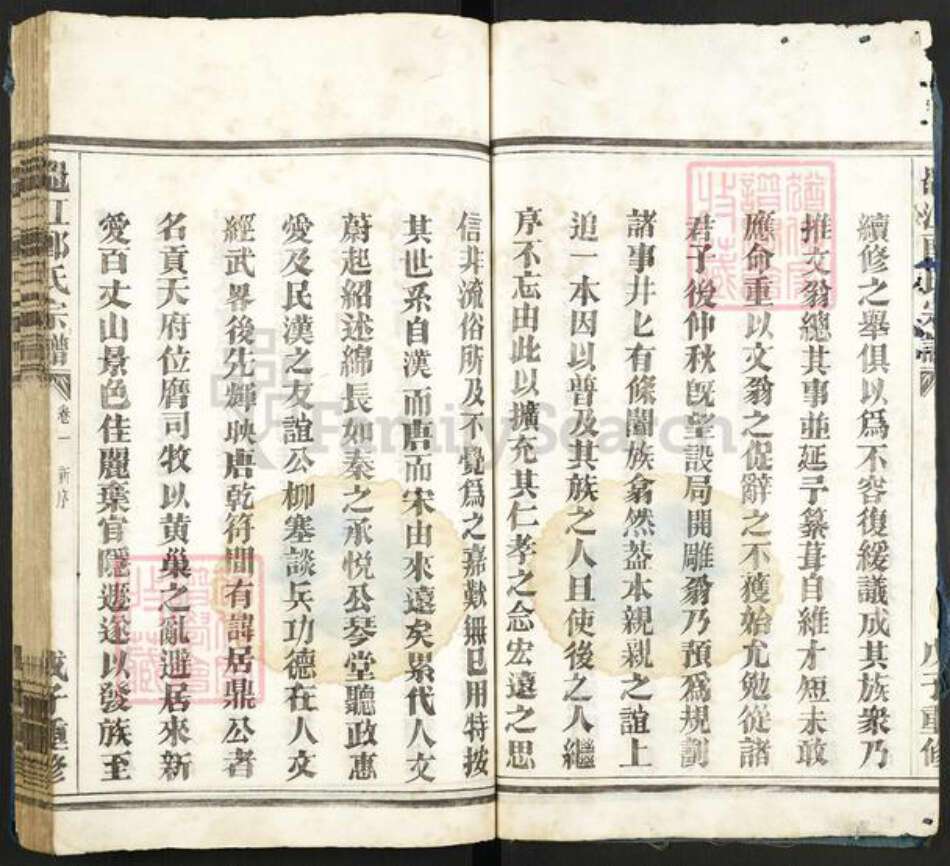 續修之舉俱以爲不容復緩議成其族衆乃
推文翁總其事並延予纂葺自維才短未敢
應命重以文翁之促辭之不獲始尤勉從諸
君子後仲秋旣望設局開雕翁乃預爲規劃
諸事井乜有條闔族翕然葢本親親之誼上
追一本因以普及其族之人且使後之人繼
序不忘由此以擴充其仁孝之念宏遠之思
信非流俗所及不覺爲之嘉歎無已用特按
其世系自漢而唐而宋由來遠矣累代人文
蔚起紹述綿長如秦之承悦公琴堂聽政惠
愛及民漢之友誼公柳塞談兵功德在人文
經武畧後先輝映唐乾符間有諱居鼎公者
名貢天府位膺司牧以黄巢之亂避居來新
愛百丈山景色佳麗葉官隱遯遂以發族至
江鄒氏宗譜
卷一
新序
戊子重修
戊子重修
FamilySearch